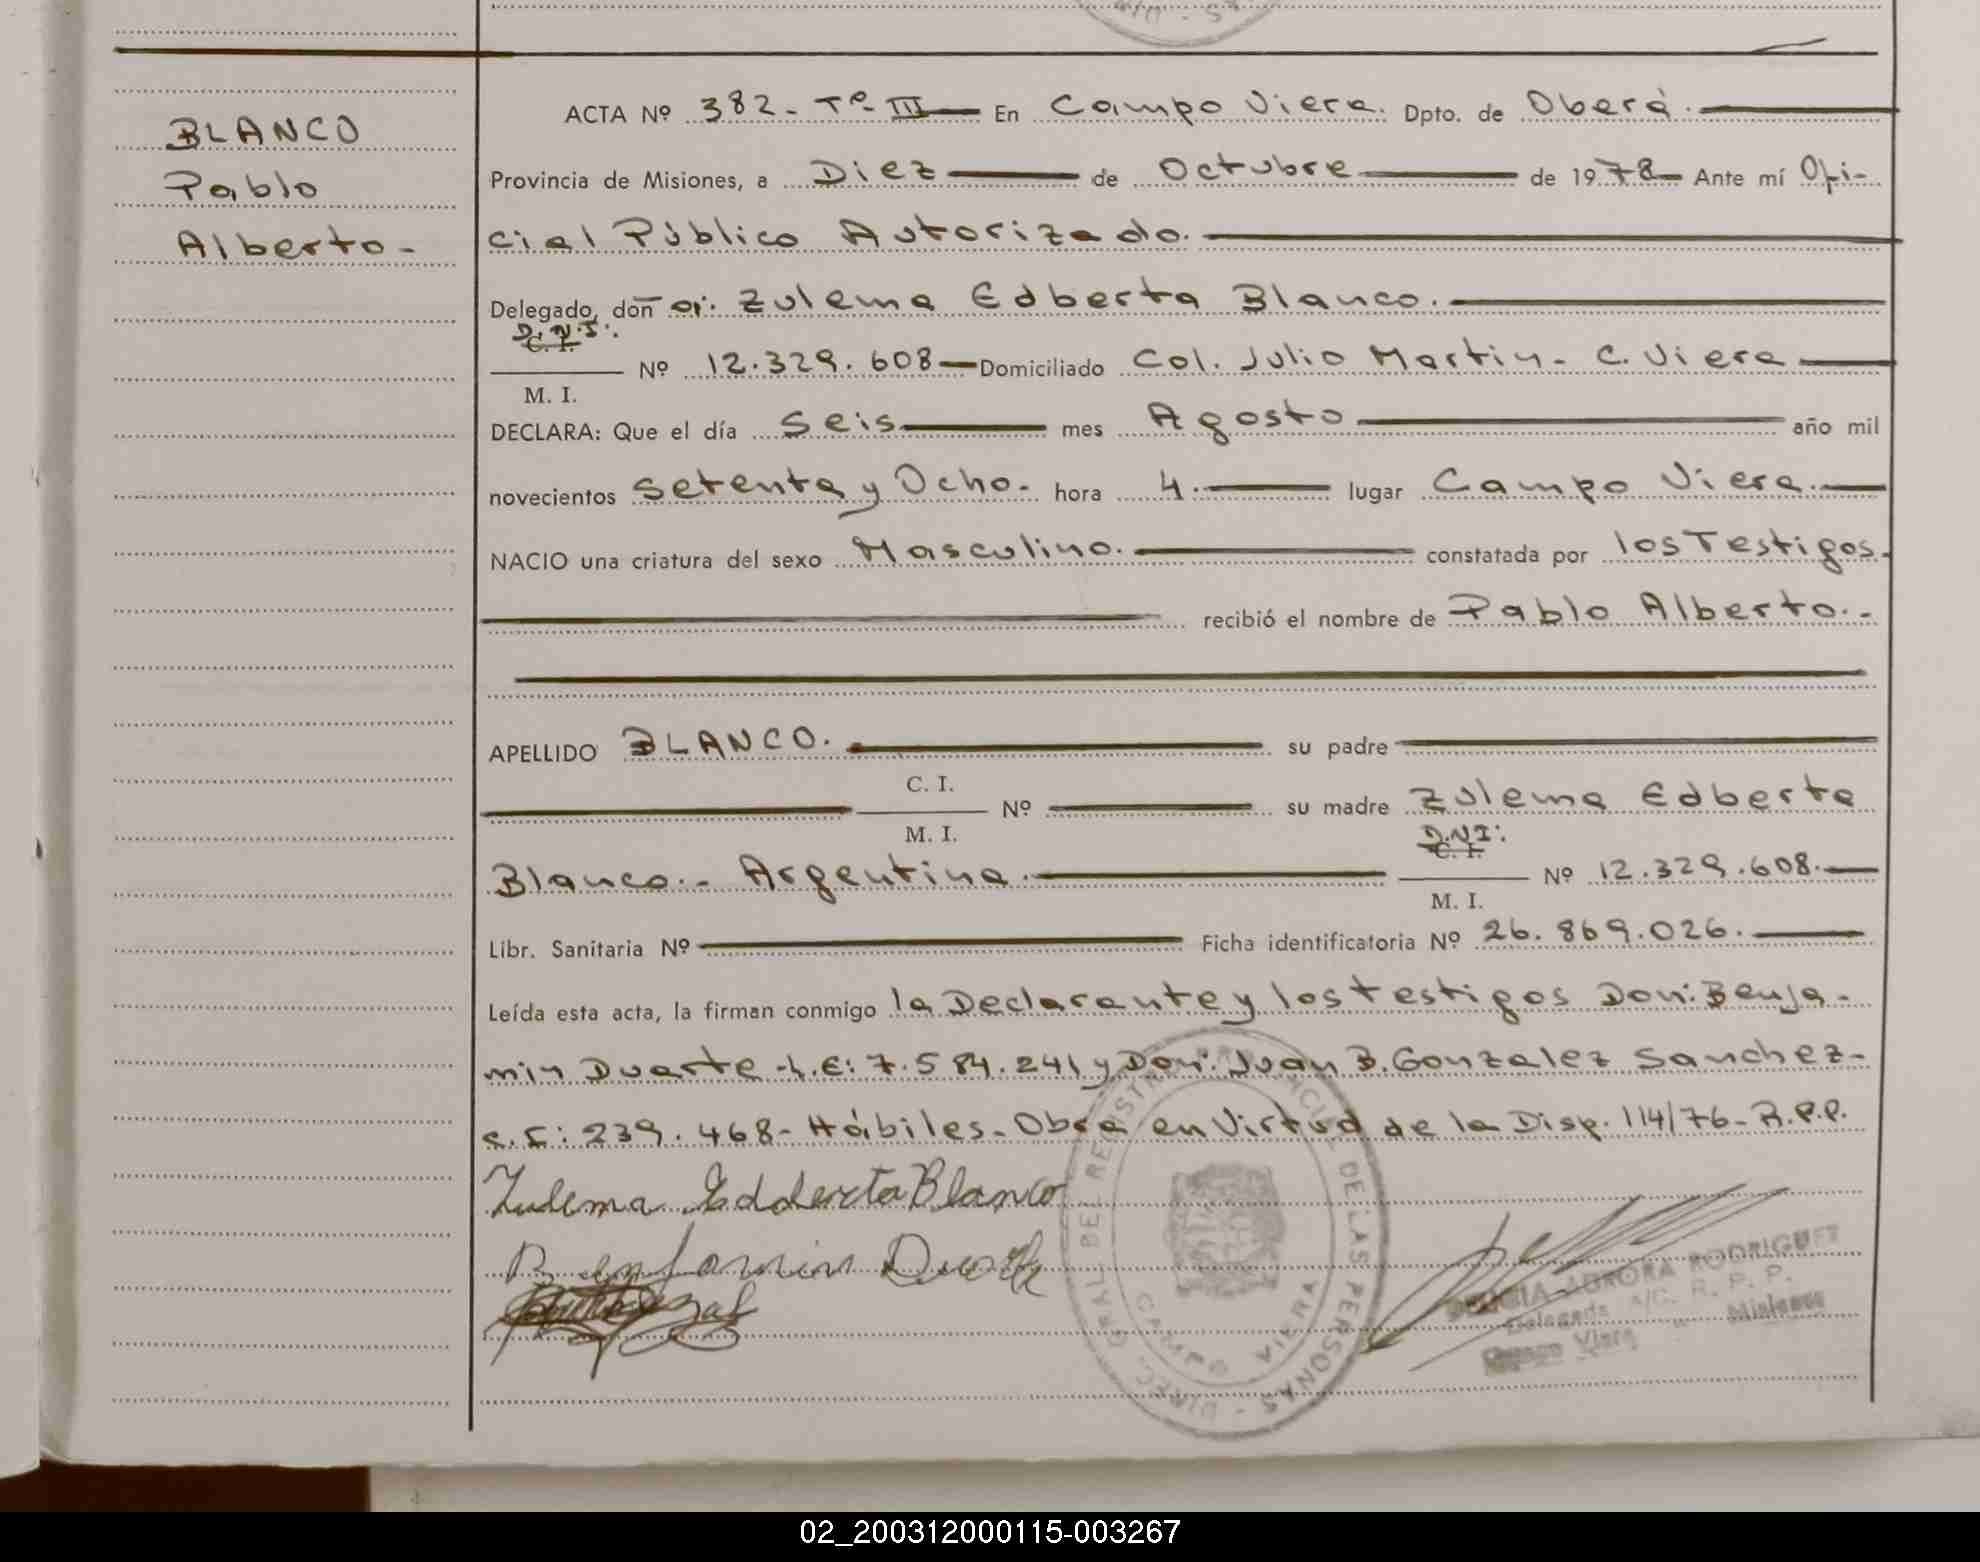 BLANCO
Pablo
Alberto-
ACTA Nº 382- Tº- III En Campo Viera. Dpto. de Oberá.
Provincia de Misiones, a Diez de Octubre de 1978 Ante mí Ofi-
cial Público Autorizado.
Delegado, don a: Zulema Edberta Blanco.
D.N.I:
C. I.
Nº 12.329.608 Domiciliado Col. Julio Martin- C. Viera
M. I.
DECLARA: Que el día Seis mes Agosto año mil
novecientos setenta y Ocho. hora 4. lugar Campo Viera.
NACIO una criatura del sexo Masculino. constatada por los Testigos.
recibió el nombre de Pablo Alberto.-
APELLIDO BLANCO. su padre
C. I.
Nº su madre Zulema Edberta
M. I.
D.N.I:
C. I.
Blanco.- Argentina. Nº 12.329.608.
M. I.
Libr. Sanitaria Nº Ficha identificatoria Nº 26.869.026.
Leída esta acta, la firman conmigo la Declarante y los testigos Don: Benja-
min Duarte -L.E: 7.584.241 y Don: Juan B. Gonzalez Sanchez-
C.I: 239.468- Hábiles- Obra en Virtud de la Disp. 114/76- R.P.P.
Zulema Edderta Blanco
Benjamin Duarte
DIREC. GRAL. DEL REGISTRO PROVINCIAL DE LAS PERSONAS
CAMPO VIERA
AURORA RODRIGUEZ
Delegada A/C. R. P. P.
Campo Viera - Misiones
02_200312000115-003267